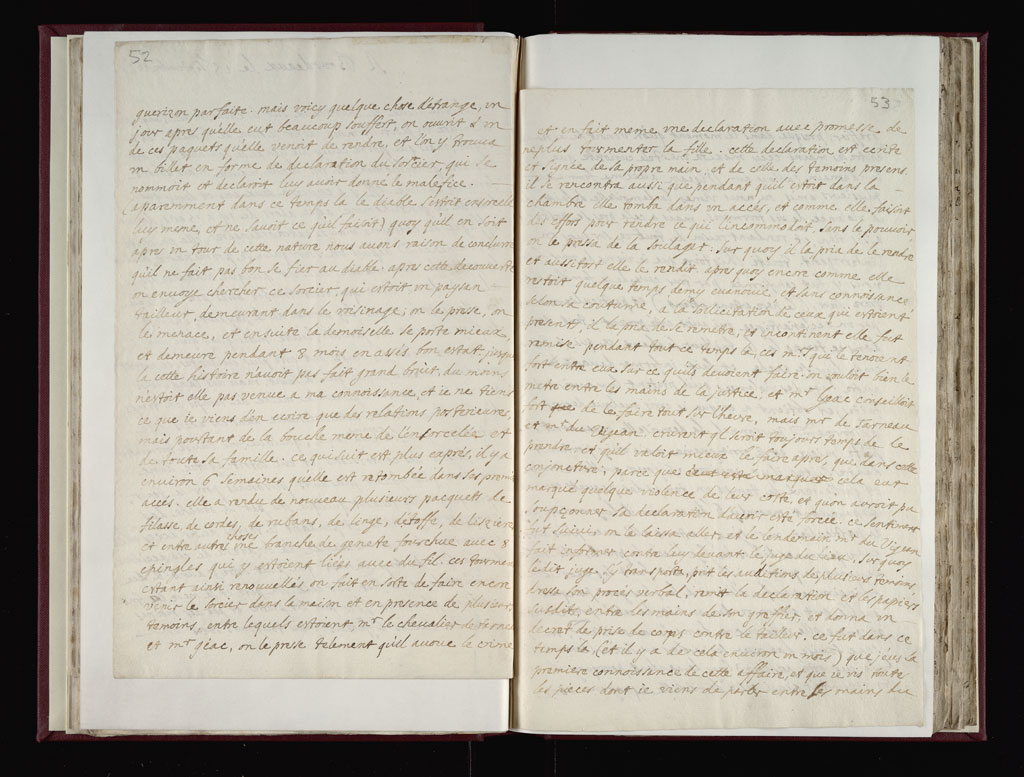 52
guerizon parfaite. mais voicy quelque chose d'etrange, vn
jour apres qu'elle eut beaucoup souffert, on ouurit vn
de ces paquets qu'elle venoit de rendre, et l'on y trouua
vn billet en forme de declaration du sorcier, qui se
nommoit et declaroit luy auoir donné le malefice.
(aparemment dans ce temps la le diable s'estoit ensorcelé
luy meme, et ne sauoit ce qu'il faisoit) quoy qu'il en soit
apres vn tour de cette nature nous auons raison de conclurre
qu'il ne fait pas bon se fier au diable. apres cette decouuerte
on enuoye chercher ce sorcier, qui estoit vn paysan
tailleur, demeurant dans le voisinage, on le prese, on
le menace, et ensuite la demoiselle se porte mieux,
et demeure pendant 8 mois en assés bon estat. jusque
la cette histoire n'auoit pas fait grand bruit, du moins
n'estoit elle pas venue a ma connoissance, et ie ne tiens
ce que ie viens d'en ecrire que des relations posterieures,
mais pourtant de la bouche meme de l'ensorcelée et
de toute sa famille. ce qui suit est plus exprés, il y a
enuiron 6 semaines qu'elle est retombée dans ses premiers
accés. elle a rendu de nouueau plusieurs pacquets de
filasse de cordes, de rubans, de linge, d'étoffe, de lisziere
et entre autres choses vne branche de genete fourchue auec 8
epingles qui y estoient liées auec du fil. ces tourmens
estant ainsi renouuellés on fait en sorte de faire encore
venir le sorcier dans la maison et en presence de plusieurs
tamoins, entre lequels estoient, mr le cheualier de
et mr géac, on le prese telement qu'il auoue le crime
53
et en fait meme, vne declaration auec promesse de
ne plus tormenter la fille. cette declaration est ecrite
et signée de sa propre main, et de celle des temoins presens.
il se rencontra aussi que pendant qu'il estoit dans la
chambre elle tomba dans vn accés, et comme elle faisoit
des effort pour rendre ce qui l'incommodoit, sans le pouuoir
on le pressa de la soulager. sur quoy il la pria de le rendre
et aussi tost elle le rendit. apres quoy encore comme elle
restoit quelque temps demy euanouie, et sans connoissance
selon sa coutume, a la sollicitation de ceux qui estoient
present, il la prie de se remetre, et incontinent elle fut
remise. pendant tout ce temps la, ces mrs qui le tenoient
fort entre eux sur ce quils deuoient faire. on vouloit bien le
metre entre les mains de la justice, et mr geac conseilloit
fort de le faire tout sur l'heure, mais mr de Jarneau
et mr du Vigean crurent ql seroit toujours temps de le
prendre, et quil valoit mieux le faire apres, qui dans cette
conjoncture, parce que cela eut
marqué quelque violence de leur costé et quon auroit pu
soupçonner sa declaration dauoir esté forcée. ce sentiment
fut suiui, on le laissa aller, et le lendemain mr du Vigean
fait informer contre luy deuant le juge du lieu. sur quoy
ledit juge s'y transporta, prit les auditions de plusieurs temoins
dressa son procés verbal, remit la declaration et les papiers
susdits, entre les mains de son greffier, et donna vn
decret de prise de corps contre le tailleur. ce fut dans ce
temps la (et il y a de cela enuiron vn mois) que j'eus la
premiere connoissance de cette affaire, et que ie vis toutes
les pieces dont ie viens de parler entre les mains du